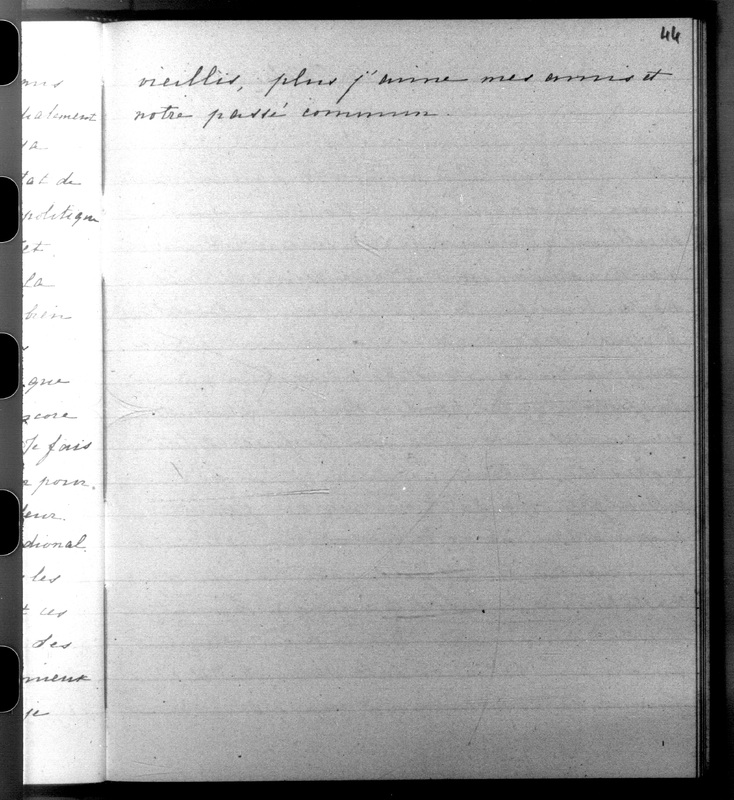 ans
alement
sa
tat de
politique
et
la
bien
que
core
Je fais
pour
teur
dional
les
t ces
des
mieux
je
44
vieillis, plus j'aime mes amis et
notre passé commun.